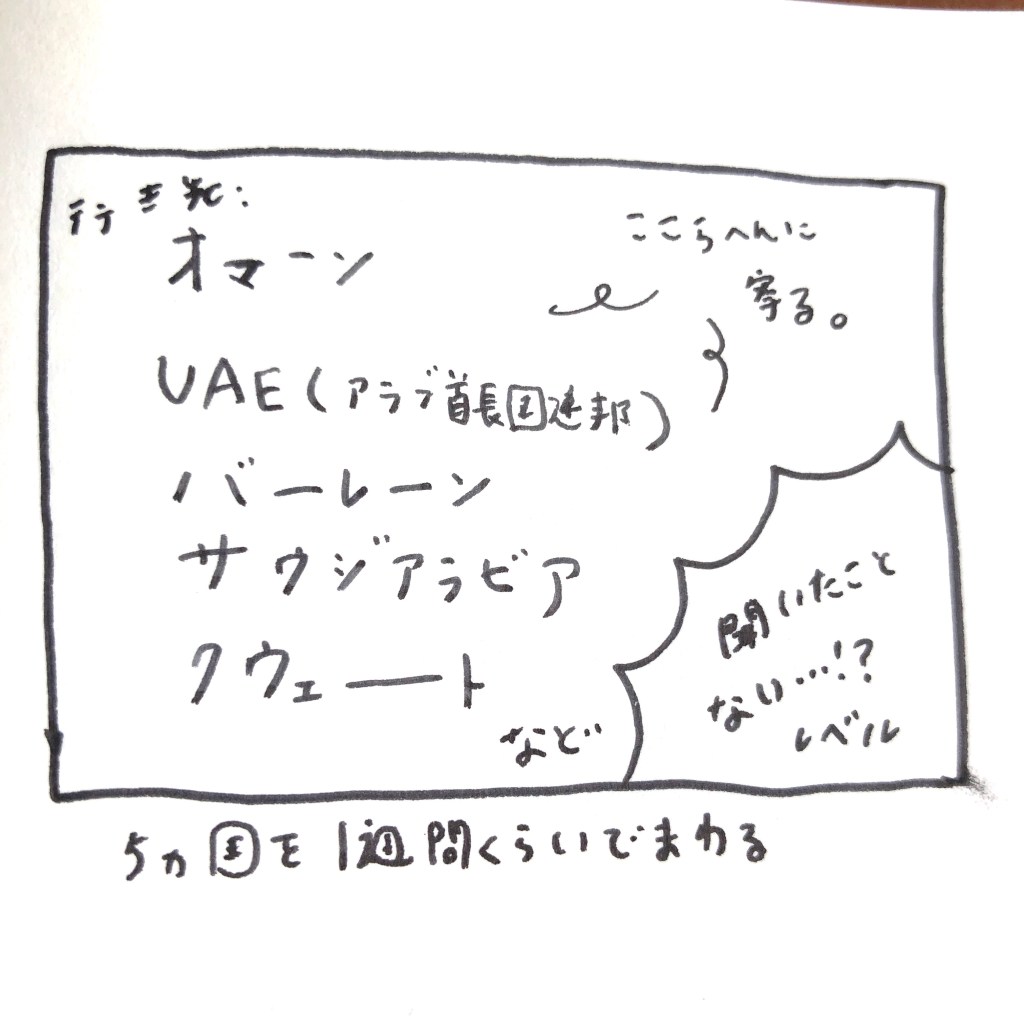 行き先:
オマーン
ここらへんに
寄る。
UAE(アラブ首長国連邦)
バーレーン
サウジアラビア
クウェート
など
聞いたこと
ない…!?
レベル
5ヵ国を1週間くらいでまわる